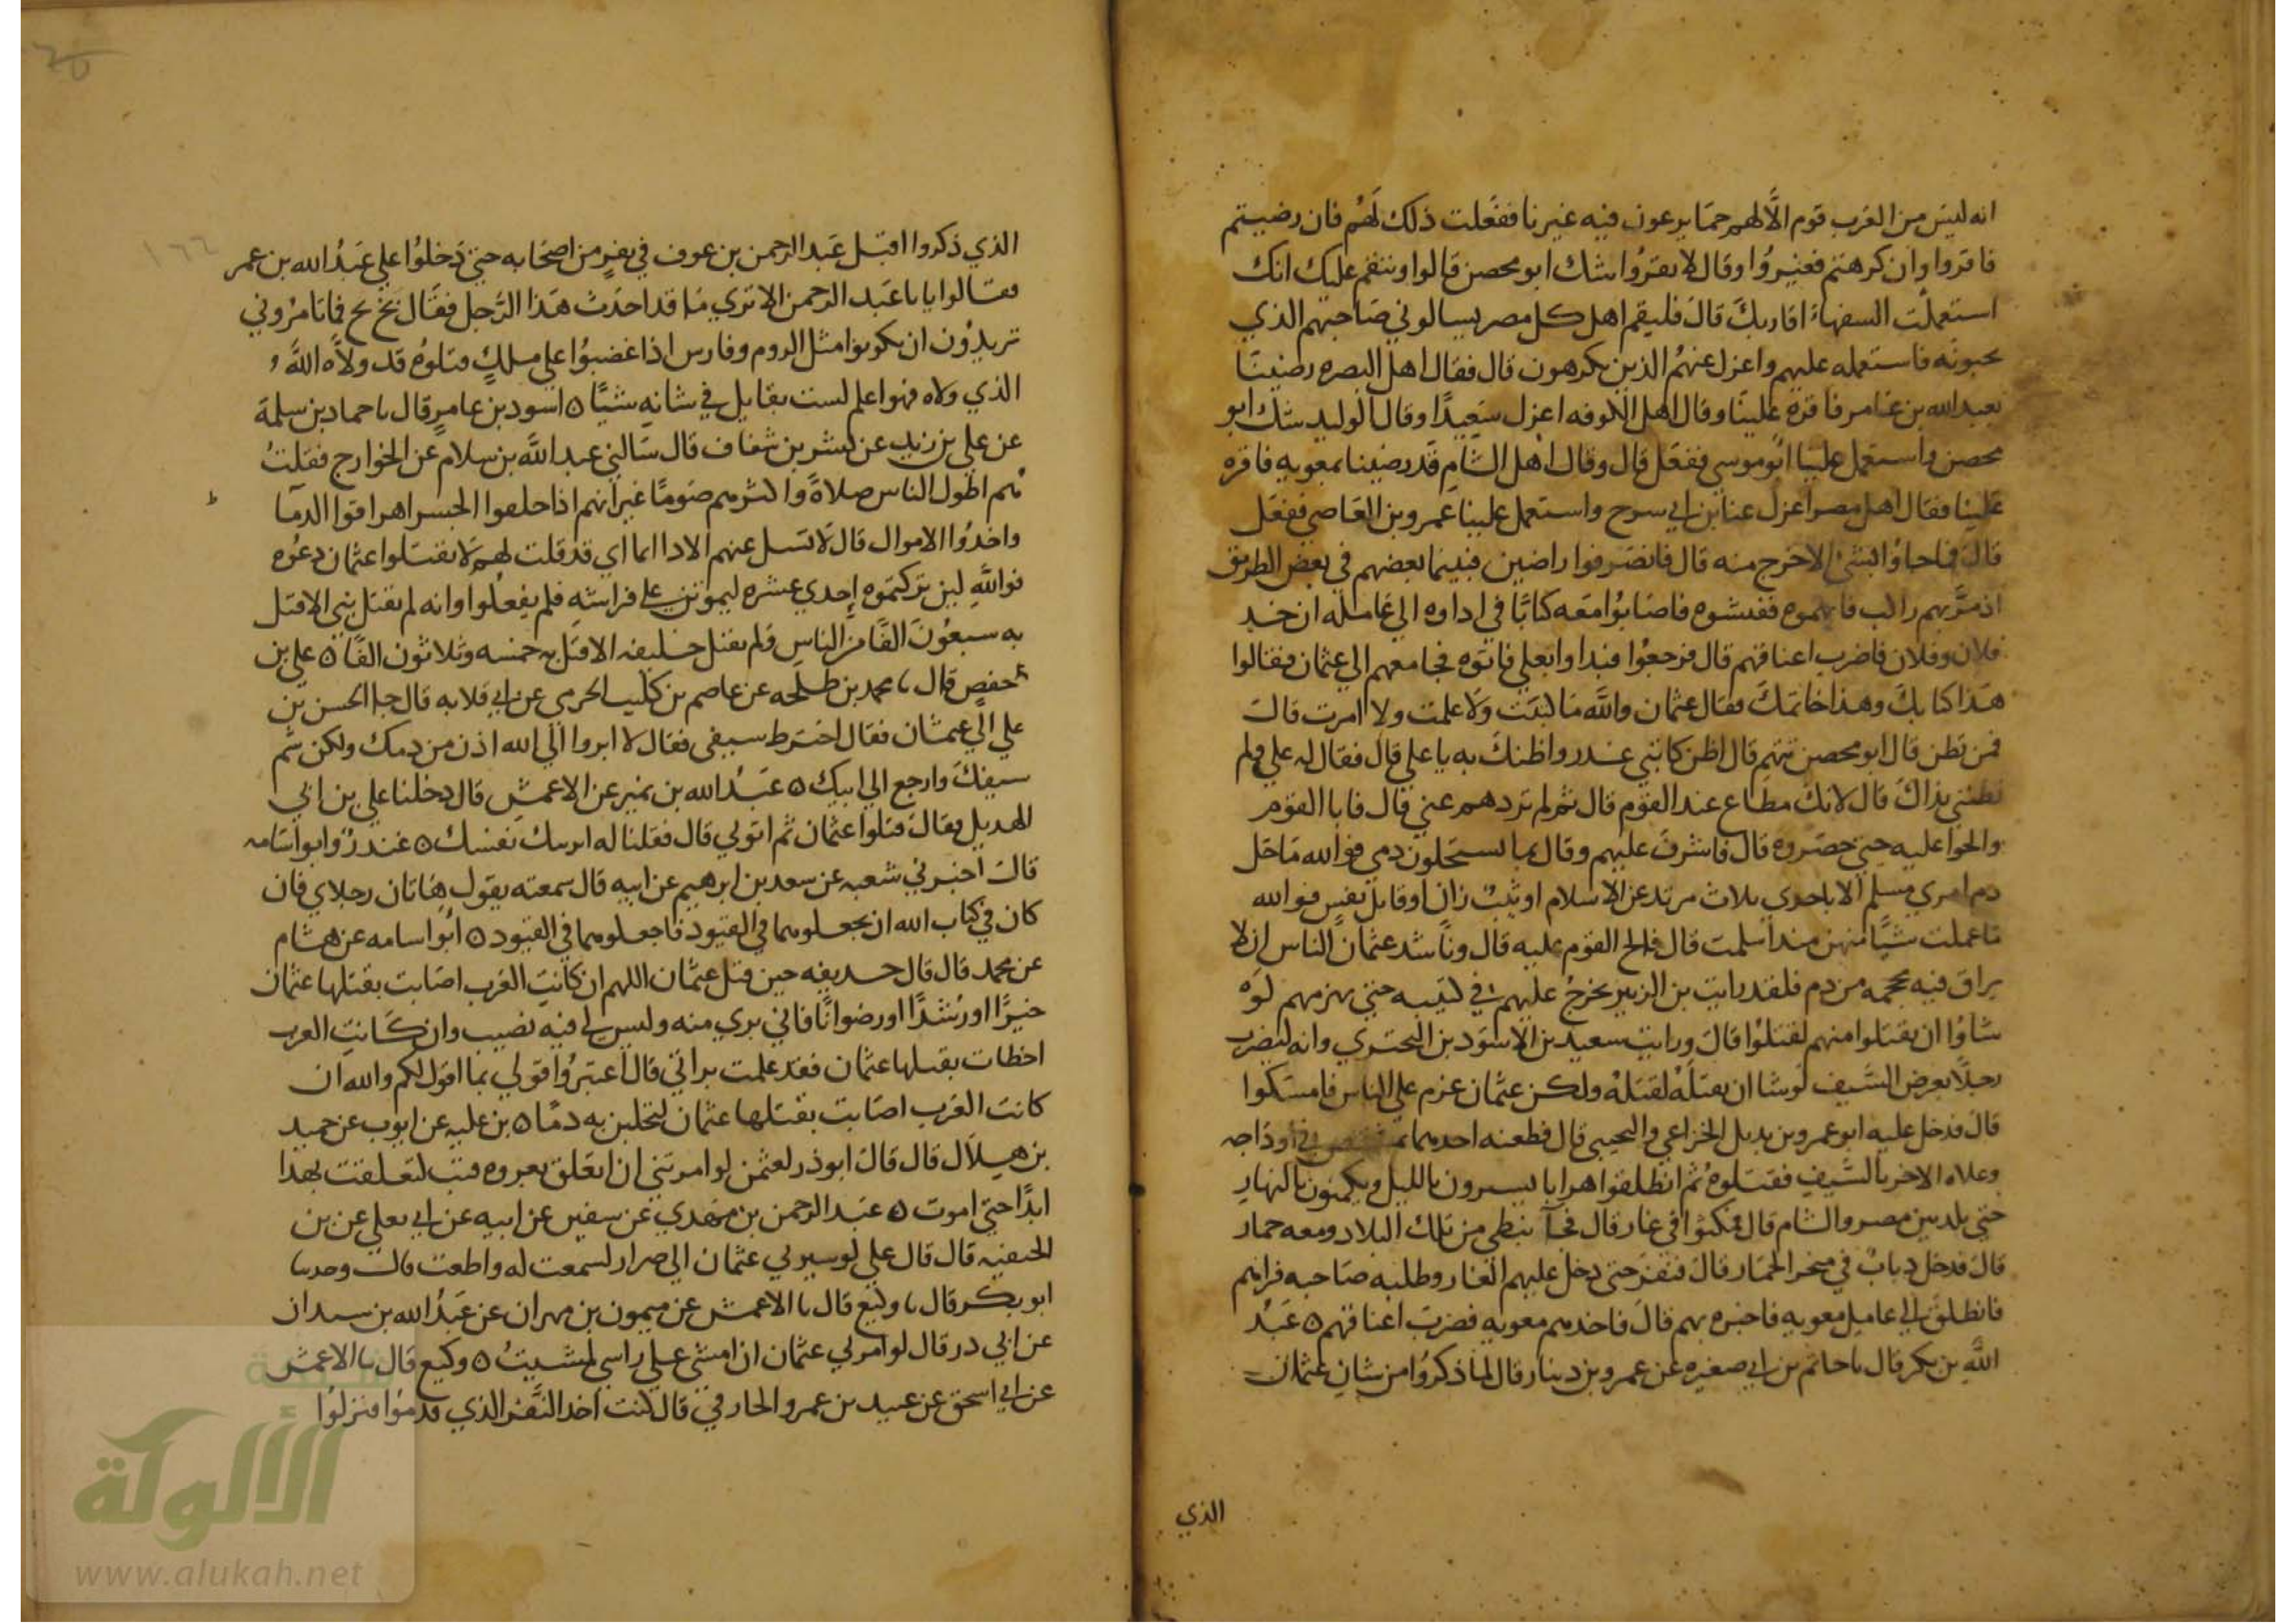 انه ليس من العرب قوم الا لهم حما يرعون فيه غيرنا ففعلت ذلك لهم فان رضيتم
فاقروا وان كرهتم فغيروا وقال لا تقروا شك ابو محصن قالوا وننقم عليك انك
استعملت السفهاء اقاربك قال فليقم اهل كل مصر يسالوني صاحبهم الذي
يحبونه فاستعمله عليهم واعزل عنهم الذين يكرهون قال فقال اهل البصره رضينا
بعبد الله بن عامر فاقره علينا وقال اهل الكوفه اعزل سعيدا وقال الوليد شك ابو
محصن واستعمل علينا ابو موسي ففعل قال وقال اهل الشام قد رضينا بمعويه فاقره
علينا فقال اهل مصر اعزل عنا ابن ابي سرح واستعمل علينا عمرو بن العاصي ففعل
قال فما جاوا بشئ الا خرج منه قال فانصرفوا راضين فبينما بعضهم في بعض الطريق
اذ مر بهم راكب فاتهموه ففتشوه فاصابوا معه كتابا في اداوه الي عامله ان خد
فلان وفلان فاضرب اعناقهم قال فرجعوا فبداوا بعلي فاتوه فجا معهم الي عثمان فقالوا
هذا كتابك وهذا خاتمك فقال عثمان والله ما كتبت ولا علمت ولا امرت قال
فمن تظن قال ابو محصن تتهم قال اظن كاتبي غدر واظنك به يا علي قال فقال له علي ولم
تظنني بذاك قال لانك مطاع عند القوم قال ثم لم تردهم عني قال فابا القوم
والحوا عليه حتي حصروه قال فاشرف عليهم وقال بما تستحلون دمي فوالله ما حل
دم امري مسلم الا باحدي ثلاث مرتد عن الاسلام او ثيب زان او قاتل نفس فوالله
ما عملت شيئا منهن منذ اسلمت قال فالح القوم عليه قال وناشد عثمان الناس ان لا
يراق فيه محجمه من دم فلقد رايت بن الزبير يخرج عليهم في كتيبه حتي يهزمهم لوه
شاوا ان يقتلوا منهم لقتلوا قال ورايت سعيد بن الاسود بن البختري وانه ليضرب
رجلا بعرض السيف لو شا ان يقتله لقتله ولكن عثمان عزم علي الناس فامسكوا
قال فدخل عليه ابو عمرو بن بديل الخزاعي والتجيبي قال فطعنه احدهما في اوداجه
وعلاه الاخر بالسيف فقتلوه ثم انطلقوا هرابا يسيرون بالليل ويكمنون بالنهار
حتي بلد بين مصر والشام قال فمكثوا في غار قال فجا نبطي من تلك البلاد ومعه حمار
قال فدخل دباب في منخر الحمار قال فنفر حتي دخل عليهم الغار وطلبه صاحبه فراهم
فانطلق الي عامل معويه فاخبره بهم قال فاخدهم معويه فضرب اعناقهم ه عبد
الله بن بكر قال نا حاتم بن ابي صغيره عن عمرو بن دينار قال لما ذكروا من شان عثمان
الذي
الذي ذكروا اقبل عبد الرحمن بن عوف في نفر من اصحابه حتي دخلوا علي عبد الله بن عمر
فقالوا يا با عبد الرحمن الا تري ما قد احدث هذا الرجل فقال بخ بخ فما تامروني
تريدون ان تكونوا مثل الروم وفارس اذا غضبوا علي ملك قتلوه قد ولاه الله
الذي ولاه فهو اعلم لست بقايل في شانه شيئا ه اسود بن عامر قال نا حماد بن سلمة
عن علي بن زيد عن بشر بن شغاف قال سالني عبد الله بن سلام عن الخوارج فقلت
هم اطول الناس صلاة واكثرهم صوما غير انهم اذا خلفوا الجسر اهراقوا الدما
واخدوا الاموال قال لا تسل عنهم الا دا اما اي قد قلت لهم لا تقتلوا عثمان دعوه
فوالله لين تركتموه احدي عشره ليموتن علي فراشه فلم يفعلوا وانه لم يقتل نبي الا قتل
به سبعون الفا من الناس ولم يقتل خليفه الا قتل به خمسه وثلاثون الفا ه علي بن
حفص قال نا محمد بن طلحه عن عاصم بن كليب الجرمي عن ابي قلابه قال جا الحسن بن
علي الي عثمان فقال اخترط سيفي فقال لا ابروا الي الله اذن من دمك ولكن شم
سيفك وارجع الي ابيك ه عبد الله بن نمير عن الاعمش قال دخلنا علي بن ابي
الهديل فقال قتلوا عثمان ثم اتوني قال فقلنا له اتريبك نفسك ه غندر وابو اسامه
قالا اخبرني شعبه عن سعد بن ابرهيم عن ابيه قال سمعته يقول هاتان رجلاي فان
كان في كتاب الله ان تجعلوهما في القيود فاجعلوهما في القيود ه ابو اسامه عن هشام
عن محمد قال قال حديفه حين قتل عثمان اللهم ان كانت العرب اصابت بقتلها عثمان
خيرا او رشدا او رضوانا فاني بري منه وليس لي فيه نصيب وان كانت العرب
اخطات بقتلها عثمان فقد علمت براتي قال اعتبروا قولي بما اقول لكم والله ان
كانت العرب اصابت بقتلها عثمان لتحلبن به دما ه بن عليه عن ايوب عن حميد
بن هلال قال قال ابو ذر لعثمن لو امرتني ان اتعلق بعروه قتب لتعلقت بها
ابدا حتي اموت ه عبد الرحمن بن مهدي عن سفين عن ابيه عن ابي يعلي عن بن
الحنفيه قال قال علي لو سيرني عثمان الي صرار لسمعت له واطعت قال وحدثنا
ابو بكر قال نا وكيع قال نا الاعمش عن ميمون بن مهران عن عبد الله بن سيدان
عن ابي در قال لو امرني عثمان ان امشي علي راسي لمشيت ه وكيع قال نا الاعمش
عن ابي اسحق عن عبيد بن عمرو الخارفي قال كنت احد النفر الذي قدموا فنزلوا
الألوكة
www.alukah.net